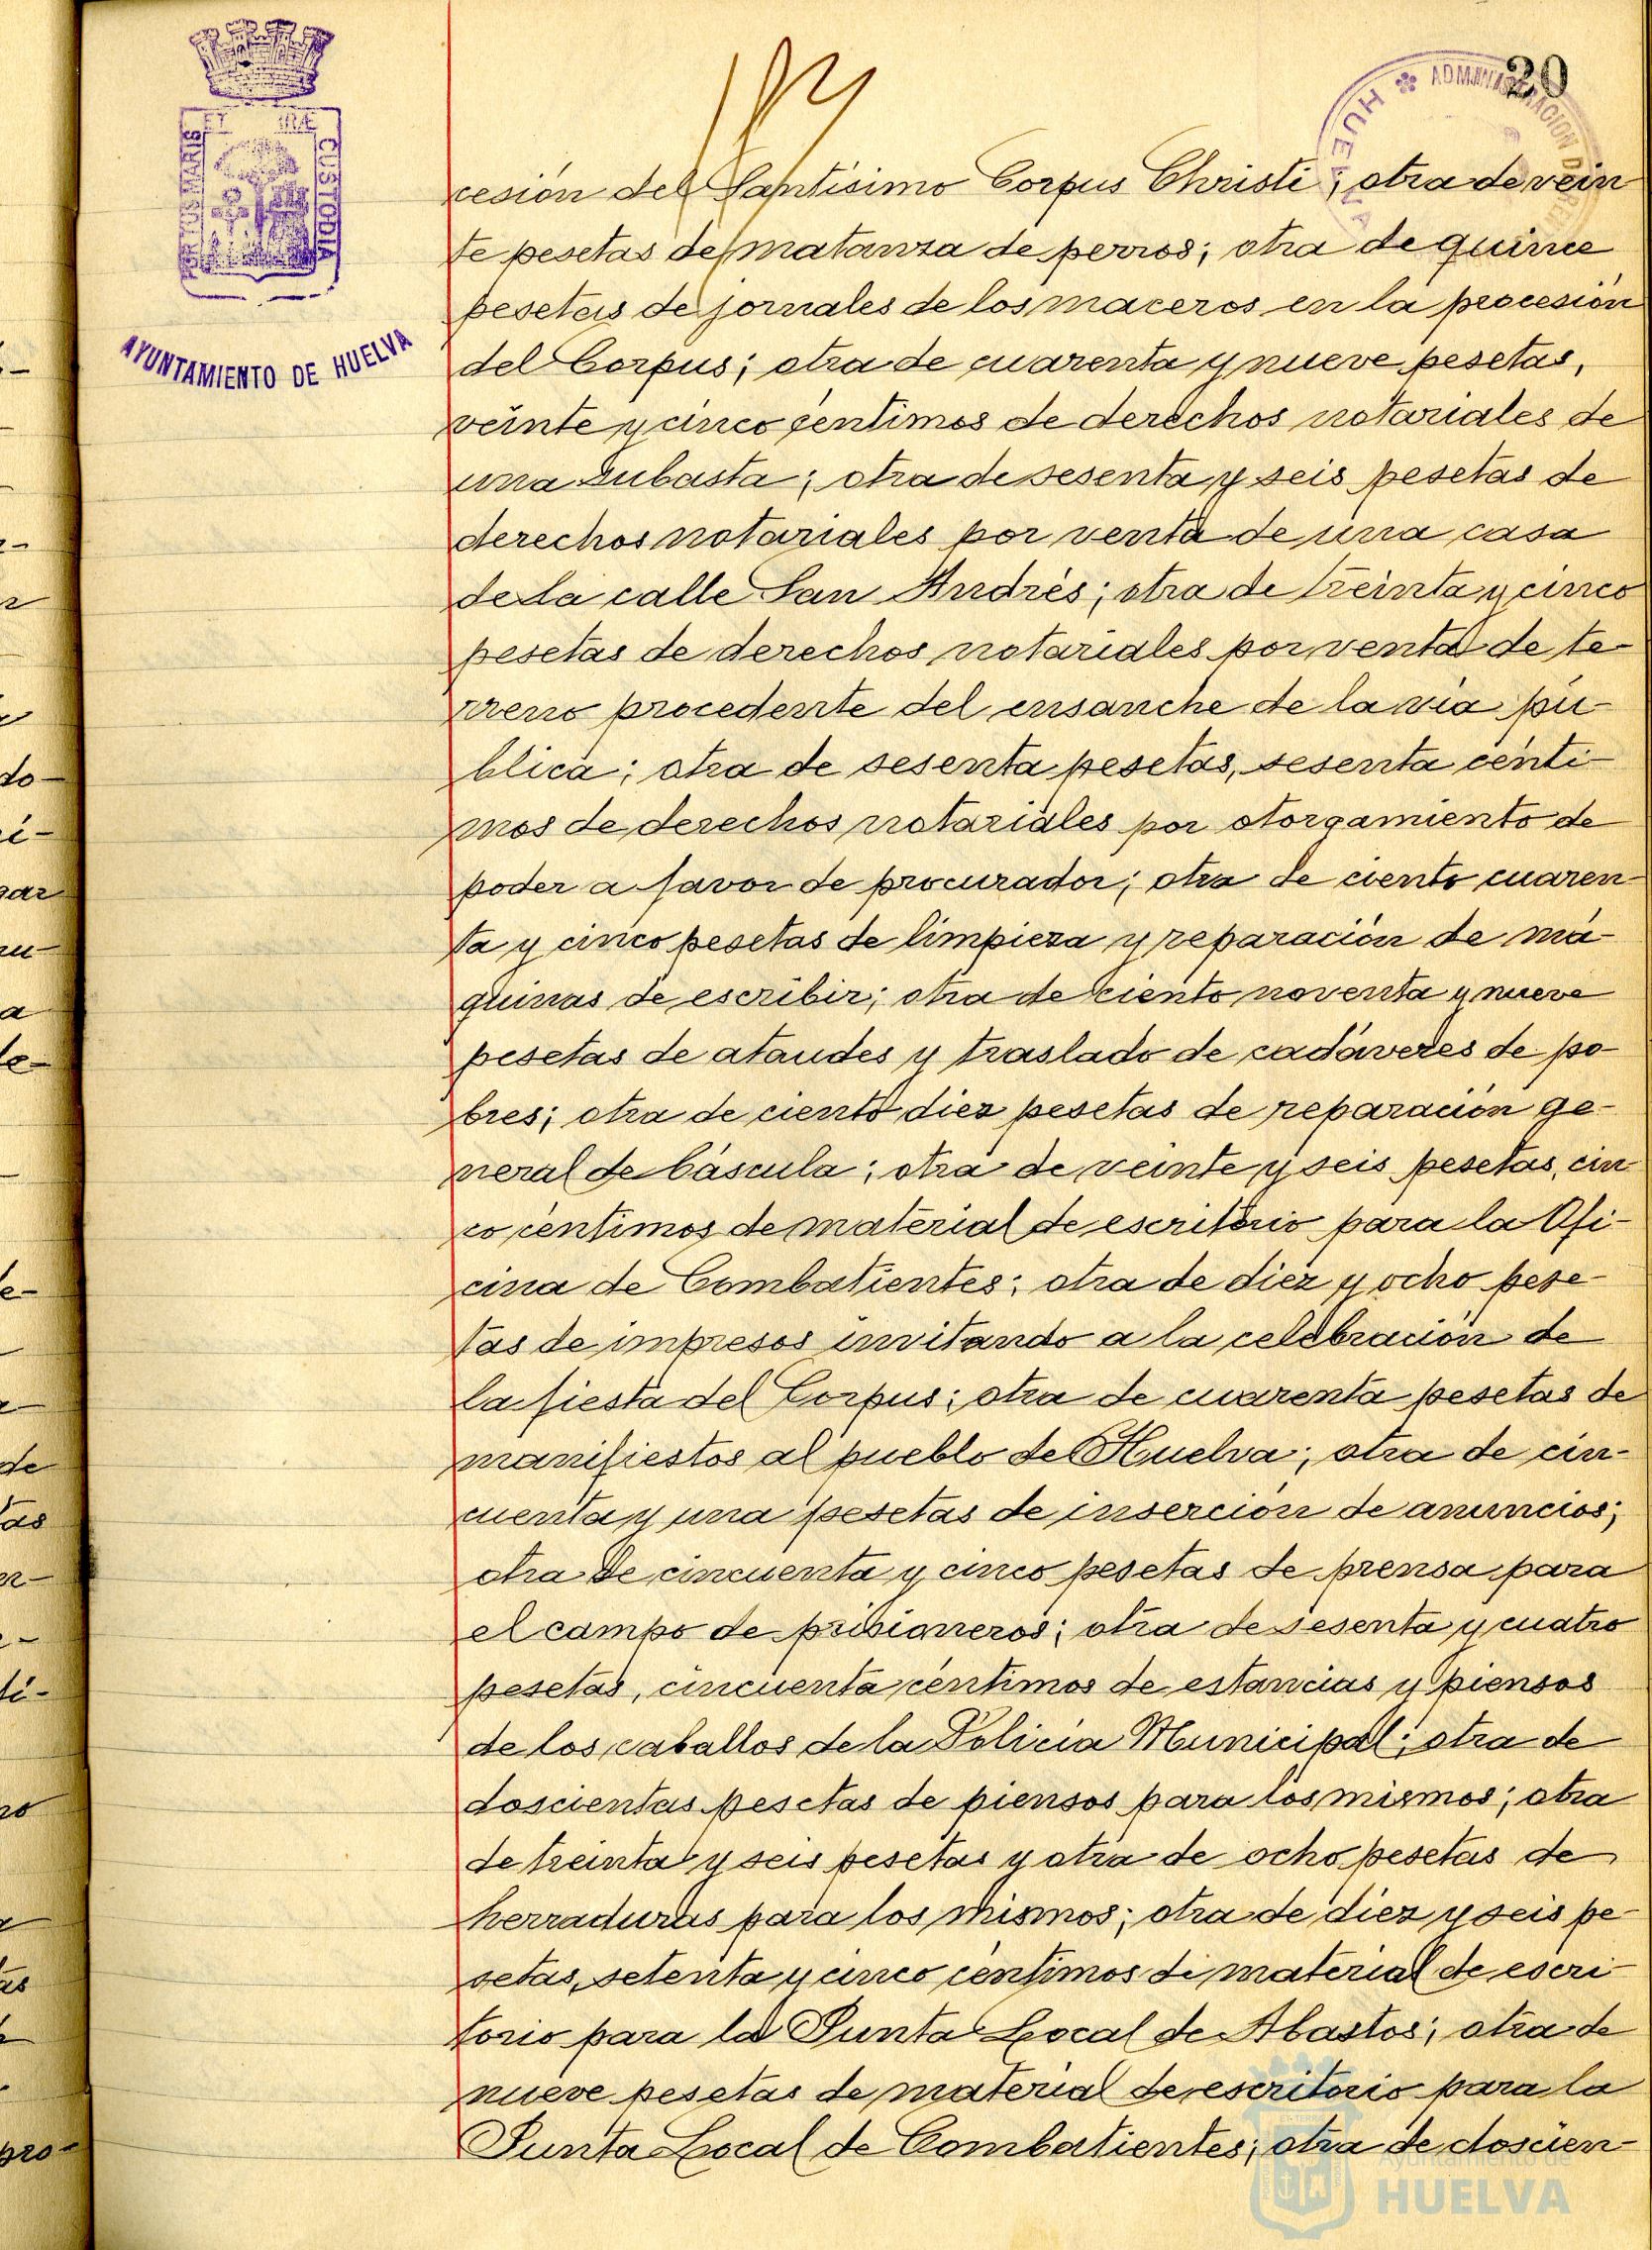 20
ADMINISTRACION DE REN
HUELVA
PORTUS MARIS ET TERRÆ CUSTODIA
AYUNTAMIENTO DE HUELVA
cesión del Santísimo Corpus Christi; otra de vein
te pesetas de matanza de perros; otra de quince
pesetas de jornales de los maceros en la procesión
del Corpus; otra de cuarenta y nueve pesetas,
veinte y cinco céntimos de derechos notariales de
una subasta; otra de sesenta y seis pesetas de
derechos notariales por venta de una casa
de la calle San Andrés; otra de treinta y cinco
pesetas de derechos notariales por venta de te-
rreno procedente del ensanche de la vía pú-
blica; otra de sesenta pesetas, sesenta cénti-
mos de derechos notariales por otorgamiento de
poder a favor de procurador; otra de ciento cuaren-
ta y cinco pesetas de limpieza y reparación de má-
quinas de escribir; otra de ciento noventa y nueve
pesetas de ataudes y traslado de cadáveres de po-
bres; otra de ciento diez pesetas de reparación ge-
neral de báscula; otra de veinte y seis pesetas, cin
co céntimos de material de escritorio para la Ofi-
cina de Combatientes; otra de diez y ocho pese-
tas de impresos invitando a la celebración de
la fiesta del Corpus; otra de cuarenta pesetas de
manifiestos al pueblo de Huelva; otra de cin-
cuenta y una pesetas de inserción de anuncios;
otra de cincuenta y cinco pesetas de prensa para
el campo de prisioneros; otra de sesenta y cuatro
pesetas, cincuenta céntimos de estancias y piensos
de los caballos de la Policía Municipal; otra de
doscientas pesetas de piensos para los mismos; otra
de treinta y seis pesetas y otra de ocho pesetas de
herraduras para los mismos; otra de diez y seis pe-
setas, setenta y cinco céntimos de material de escri-
torio para la Junta Local de Abastos; otra de
nueve pesetas de material de escritorio para la
Junta Local de Combatientes; otra de doscien-
Ayuntamiento de
HUELVA